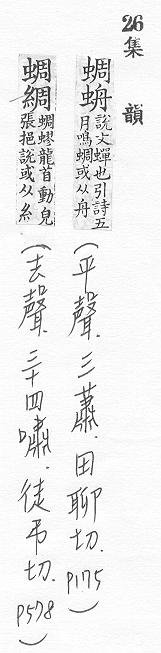 26
集韻
蜩蛧 說文蟬也引詩五月鳴蜩或从舟
(平聲.三蕭.田聊切.P175)
蜩綢 蜩蟉龍首動皃張揖說或从糸
(去聲.三十四嘯.徒吊切.P578)